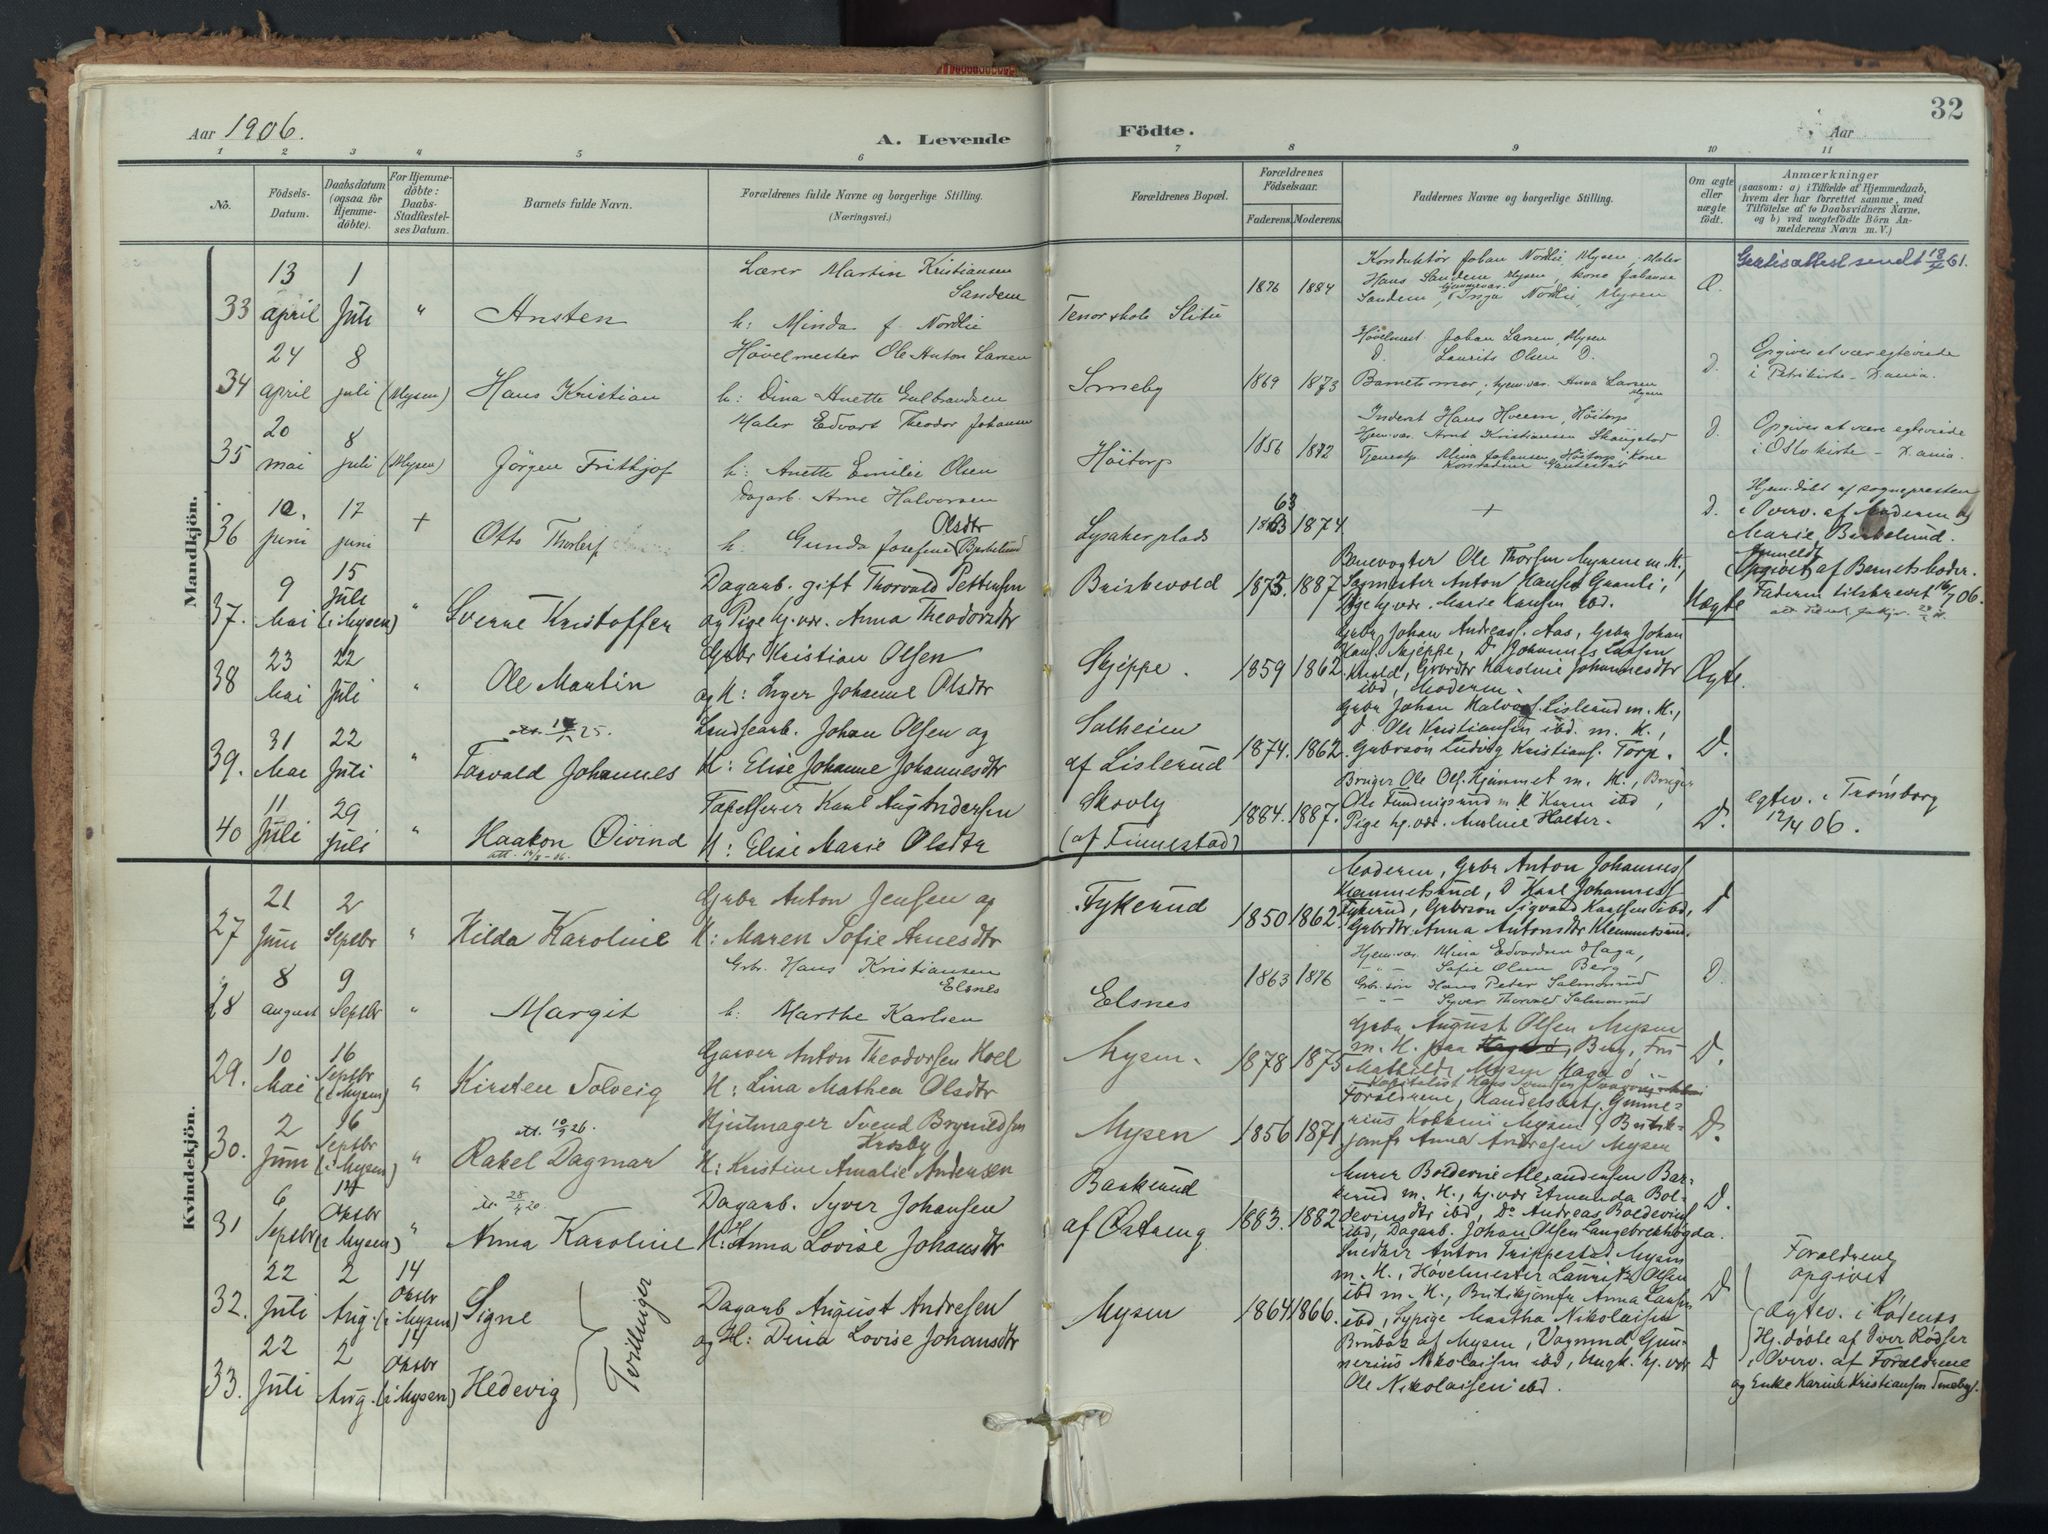 32
Aar 1906.
A. Levende
Födte.
Aar
1 2 3 4 5 6 7 8 9 10 11
Nö.
Födsels-Datum.
Daabsdatum (ogsaa for Hjemmedöbte).
For Hjemmedöbte: Daabs-Stadfæstelses Datum.
Barnets fulde Navn.
Forældrenes fulde Navne og borgerlige Stilling.
(Næringsvei.)
Forældrenes Bopæl.
Forældrenes Födselsaar.
Faderens. Moderens.
Faddernes Navne og borgerlige Stilling.
Om ægte eller uægte födt.
Anmærkninger
(saasom: a) i Tilfælde af Hjemmedaab, hvem der har forrettet samme, med Tilföielse af to Daabsvidners Navne, og b) ved uægtefödte Börn Anmelderens Navn m. V.)
Mandkjön.
33 13 april 1 Juli " Ansten
Lærer Martin Kristiansen Sandem
h: Minda f. Nordlie
Tenor skole Slitu 1876 1884
Konduktör Johan Nordlie, Mysen, Maler
Hans Sandem, Mysen, kone Johanne
Sandem, Inga Nordlie, Mysen
Æ.
Gratisattest sendt
34 24 april 8 juli (Mysen) Hans Kristian
Hövelmester Ole Anton Larsen
h: Dina Anette Gulbrandsen
Smeby 1869 1873
Hövelmest. Johan Larsen, Mysen
D. Laurits Olsen D.
Barnets mor, hjem.var. Anna Larsen Mysen
D.
Opgives at vær egteviede
i Petrikirke - X.ania.
35 20 mai 8 juli (Mysen) Jörgen Frithjof
Maler Edvart Theodor Johansen
h: Anette Emilie Olsen
Höitorp 1856 1872
Inderst Hans Hveem, Höitorp
Hjem.var. Arnt Kristiansen
Tjenestp. Alma Johansen, Höitorp, Kone
D.
Opgives at være egteviede
i Oslo kirke - X.ania.
36 10. juni 17 juni + Otto Thorleif
Dagarb. Arne Halvorsen
h: Gunda Josefine Olsdtr
Lysakerplads 63 1874
+
D.
Hjem.döbt af sognepresten
i Overv. af Moderen og
Marie
37. 9 Mai 15 Juli (i Mysen) " Sverre Kristoffer
Dagarb. gift Thorvald Pettersen
og Pige hj.vær. Anna Theodorsdtr
Brisbevold 1873 1887
Banevogter Ole Thorsen Mysen m. H.,
Sagmester Anton Hansen
Pige hj.vær. Marie Hansen ibd.
Uægte
Anmeldt af Barnets Fader.
Faderen tilskrevet 16/7 06.
38 23 Mai 22 Juli " Ole Martin
Grbr Kristian Olsen
og H: Inger Johanne Olsdtr
Skjeppe. 1859 1862
Grbr Johan Andreas. Aas, Grbr Johan
Hans. Skjeppe, D Johannes Larsen
Grbrdtr Karoline Johannesdtr
ibd, Moderen.
Ægte.
39. 31 Mai 22 Juli " Torvald Johannes
Landsearb. Johan Olsen og
H: Elise Johanne Johannesdtr
Salheien
af Lislerud 1874. 1862.
Grbr Johan Halvors. Lislerud m. H.,
D. Ole Kristiansen ibd. m. H.,
Grbrsön Ludvig Kristians. Torp.
D.
40 11 Juli 29 Juli " Haakon Öivind
Tapetserer Karl Aug Andersen
H: Elise Marie Olsdtr
Skovly
(af Finnestad) 1884. 1887.
Bruger Ole Ols. Hjemmet m. H., Bruger
Ole m H Karen ibd,
Pige hj.vær. Halter.
D.
Egtev. i Trömborg
12/4 06.
Kvindekjön.
27 21 Juni 2 Septbr " Hilda Karoline
Grbr Anton Jensen og
H: Maren Sofie Arnesdtr
Fykerud 1850 1862
Moderen, Grbr Anton Johannes
Klemmetsrud, D Karl Johannes.
Fykerud, Grbrsön Sigvald Karlsen ibd,
Grbrdtr. Anna Antonsdtr Klemmetsrud.
D
28 8 august 9 Septbr " Margit
Grbr. Hans Kristiansen Elsnes
h: Marthe Karlsen
Elsnes 1863 1876
Hjem.var. Mina Edvardsen Haga,
- " - Sofie Olsen Berg
Grb.sön Hans Peter Salmonrud
- " - Syver Thorvald Salmonrud
D.
29. 10 Mai 16 Septbr (i Mysen) " Kirsten Solveig
Garver Anton Theodorsen Hoel
H: Lina Mathea Olsdtr
Mysen. 1878 1875
Grbr August Olsen Mysen
m. H. paa Berg, Frk
Mathilde Mysen Haga
Kapitalist Hans Svendsen
D.
30. 2 Juni 16 Septbr (i Mysen) " Rakel Dagmar
Hjulmager Svend Brynildsen Krosby
H: Kristine Amalie Andersen
Mysen 1856 1871
Forældrene, Handelsbetj. Gunnerius
Mysen, Butikjomfr Anna Andresen Mysen
D.
31 6 Septbr 14 Oktbr (i Mysen) " Anna Karoline
Dagarb. Syver Johansen
H: Anna Lovise Johansdtr
Baskerud
af Östreng 1883. 1882
Murer Boldevin Alexandersen
m. H., hj.vær Amanda Boldevinsdtr
ibd, Do Andreas Boldevins
ibd, Dagarb. Johan Olsen Langebrekhögda.
D.
32. 22 Juli 2 Aug. 14 Oktbr (i Mysen) Signe
33. 22 Juli 2 Aug. 14 Oktbr (i Mysen) Hedevig
Tvillinger
Dagarb August Andresen
og H: Dina Lovise Johansdtr
Mysen 1864 1866.
Snedker Anton Trippestad Mysen
m. H., Hövelmester Lauritz Olsen
ibd m. H., Butikjomfr Anna Larsen
ibd, Sypige Martha Nikolaisen
af Mysen, Vognmd Gunnerius
Nikolaisen ibd, Ungk. hj.vær
Ole Nikolaisen ibd.
D
D
Forældrene
opgivet
Ægtev. i Rödenes
Hj. döbte af Iver Rödser
i Overv. af Forældrene
og Enke Karina Kristiansen Smeby.